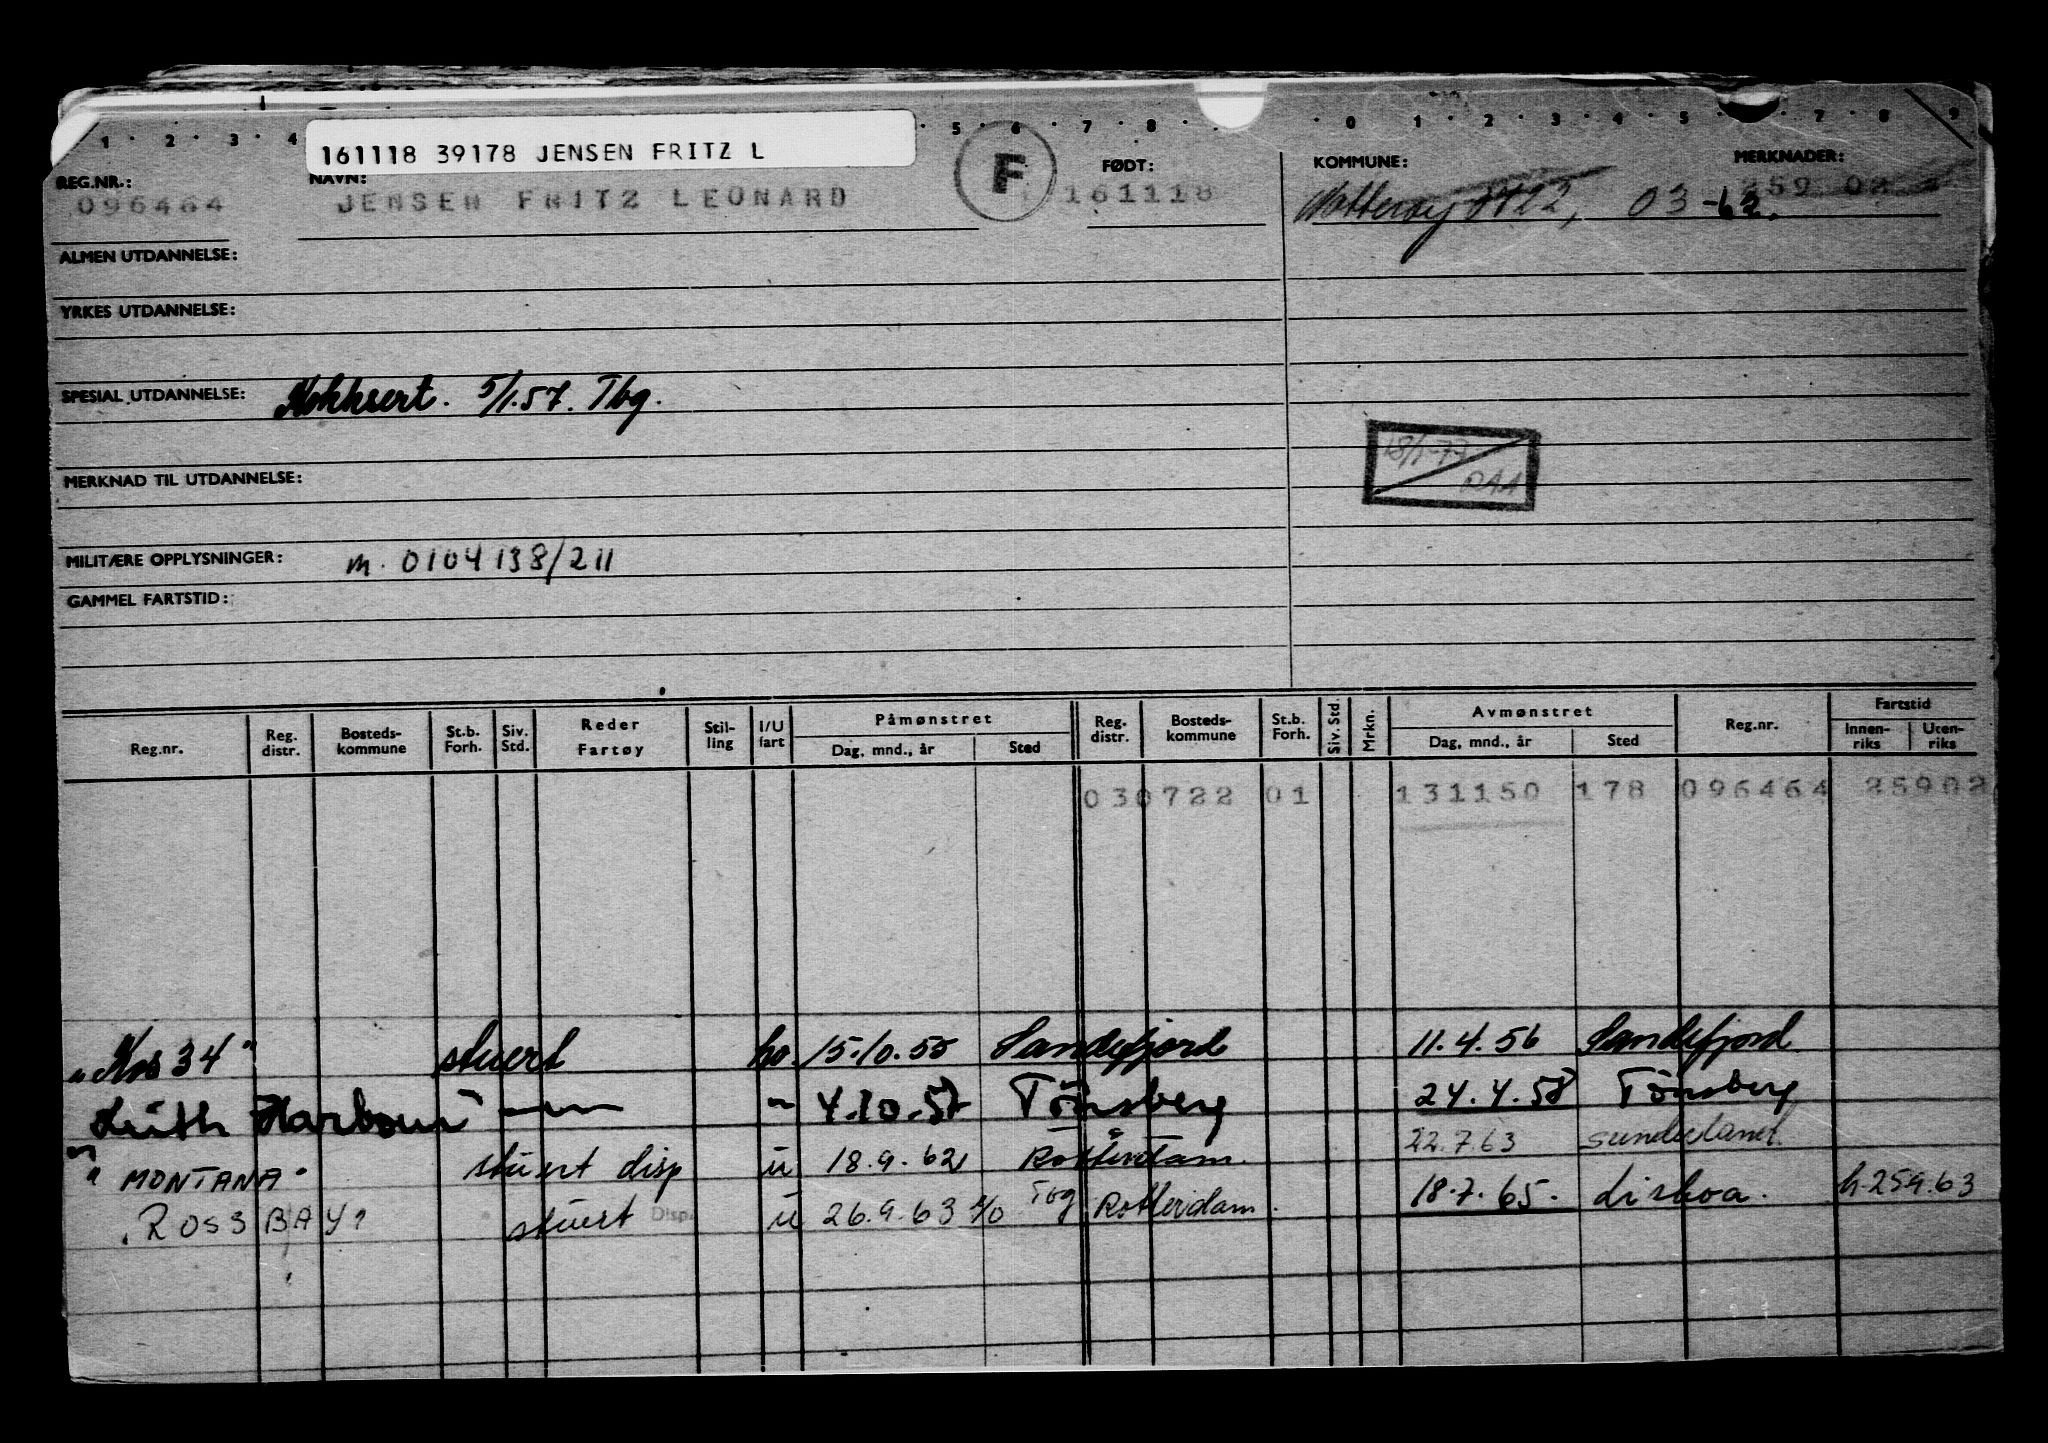 1 · 2 · 3 · 4 5 · 6 · 7 · 8 · · 0 1 · 2 · 3 · 4 · 5 · 7 · 8 · 9
161118 39178 JENSEN FRITZ L
REG.NR.: NAVN: F FØDT: KOMMUNE: MERKNADER:
096464 JENSEN FRITZ LEONARD 161118 Nøtterøy 0722, 03-62. 259 02
ALMEN UTDANNELSE:
YRKES UTDANNELSE:
SPESIAL UTDANNELSE: Kokksert. 5/1.57. Tbg.
18/1-77
RAA
MERKNAD TIL UTDANNELSE:
MILITÆRE OPPLYSNINGER: m. 0104138/211
GAMMEL FARTSTID:
Reg.nr. Reg. distr. Bosteds-kommune St.b. Forh. Siv. Std. Reder Fartøy Stil-ling I/U fart Påmønstret Dag, mnd., år Sted Reg. distr. Bosteds-kommune St.b. Forh. Siv. Std. Mrkn. Avmønstret Dag, mnd., år Sted Reg.nr. Fartstid Innen-riks Uten-riks
030722 01 131150 178 096464 25902
"Kos 34" stuert ho. 15.10.55 Sandefjord 11.4.56 Sandefjord
"Leith Harbour" —"— " 4.10.57 Tönsberg 24.4.58 Tönsberg
"MONTANA" stuert disp u 18.9.62 Rotterdam. 22.7.63 Sunderland.
"ROSS BAY" stuert Disp. u 26.9.63 Tbg Rotterdam. 18.7.65. Lisboa. h.259.63